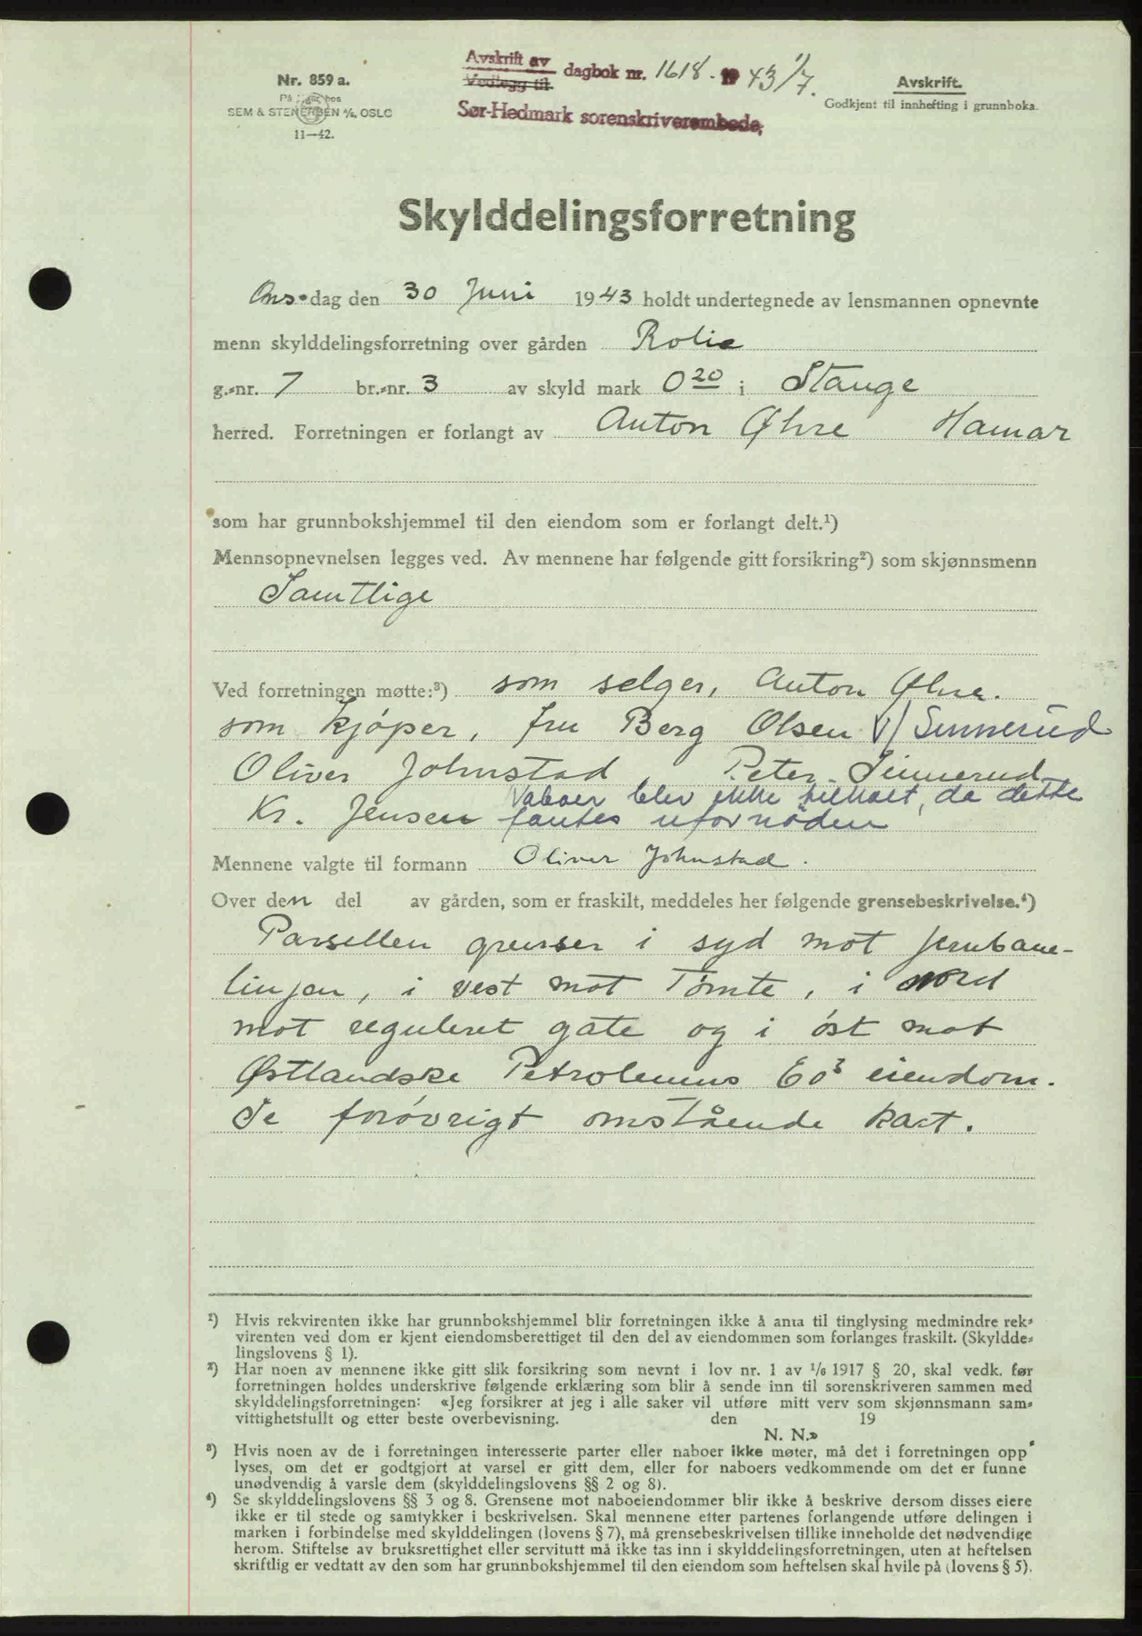 Nr. 859 a.
På lager hos
SEM & STENERSEN A/S, OSLO
11—42.
Avskrift av
Vedlegg til
dagbok nr. 1618 - 1943 1/7.
Sør-Hedmark sorenskriverembede,
Avskrift.
Godkjent til innhefting i grunnboka.
Skylddelingsforretning
Ons-dag den 30 Juni 1943 holdt undertegnede av lensmannen opnevnte
menn skylddelingsforretning over gården Rolie
g.-nr. 7 br.-nr. 3 av skyld mark 0 20 i Stange
herred. Forretningen er forlangt av Anton Øhre Hamar
som har grunnbokshjemmel til den eiendom som er forlangt delt.¹)
Mennsopnevnelsen legges ved. Av mennene har følgende gitt forsikring²) som skjønnsmenn
Samtlige
Ved forretningen møtte:³) som selger, Anton Øhre.
som kjøper, fru Berg Olsen v/Sinnerud
Oliver Johnstad, Peter Sinnerud
Kr. Jensen Naboer blev ikke tilkalt, da dette
fantes ufornöden
Mennene valgte til formann Oliver Johnstad.
Over den del av gården, som er fraskilt, meddeles her følgende grensebeskrivelse.⁴)
Parsellen grenser i syd mot jernbane-
linjen, i vest mot Tomte, i nord
mot reguleret gate og i øst mot
Østlandske Petroleums Co's eiendom.
Se forøvrigt omstående kart.
¹) Hvis rekvirenten ikke har grunnbokshjemmel blir forretningen ikke å anta til tinglysing medmindre rek-
virenten ved dom er kjent eiendomsberettiget til den del av eiendommen som forlanges fraskilt. (Skyldde-
lingslovens § 1).
²) Har noen av mennene ikke gitt slik forsikring som nevnt i lov nr. 1 av 1/6 1917 § 20, skal vedk. før
forretningen holdes underskrive følgende erklæring som blir å sende inn til sorenskriveren sammen med
skylddelingsforretningen: «Jeg forsikrer at jeg i alle saker vil utføre mitt verv som skjønnsmann sam-
vittighetsfullt og etter beste overbevisning. den 19
N. N.»
³) Hvis noen av de i forretningen interesserte parter eller naboer ikke møter, må det i forretningen opp-
lyses, om det er godtgjort at varsel er gitt dem, eller for naboers vedkommende om det er funne
unødvendig å varsle dem (skylddelingslovens §§ 2 og 8).
⁴) Se skylddelingslovens §§ 3 og 8. Grensene mot naboeiendommer blir ikke å beskrive dersom disses eiere
ikke er til stede og samtykker i beskrivelsen. Skal mennene etter partenes forlangende utføre delingen i
marken i forbindelse med skylddelingen (lovens § 7), må grensebeskrivelsen tillike inneholde det nødvendige
herom. Stiftelse av bruksrettighet eller servitutt må ikke tas inn i skylddelingsforretningen, uten at heftelsen
skriftlig er vedtatt av den som har grunnbokshjemmel til den eiendom som heftelsen skal hvile på (lovens § 5).